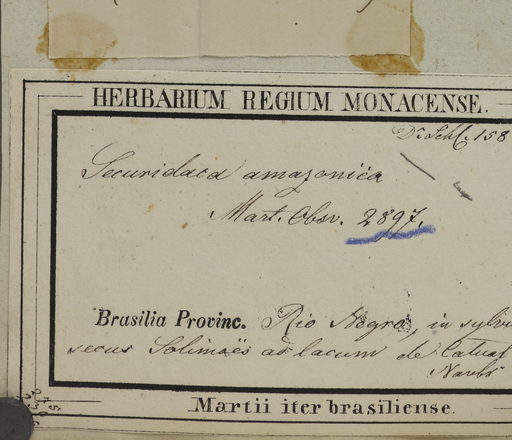 HERBARIUM REGIUM MONACENSE.
Schl. 158
Securidaca amazonica
Mart. Obsv. 2897.
Brasilia Provinc. Rio Negro, in sylvi
secus Solimoës ad lacum de
Novbr
Martii iter brasiliense.